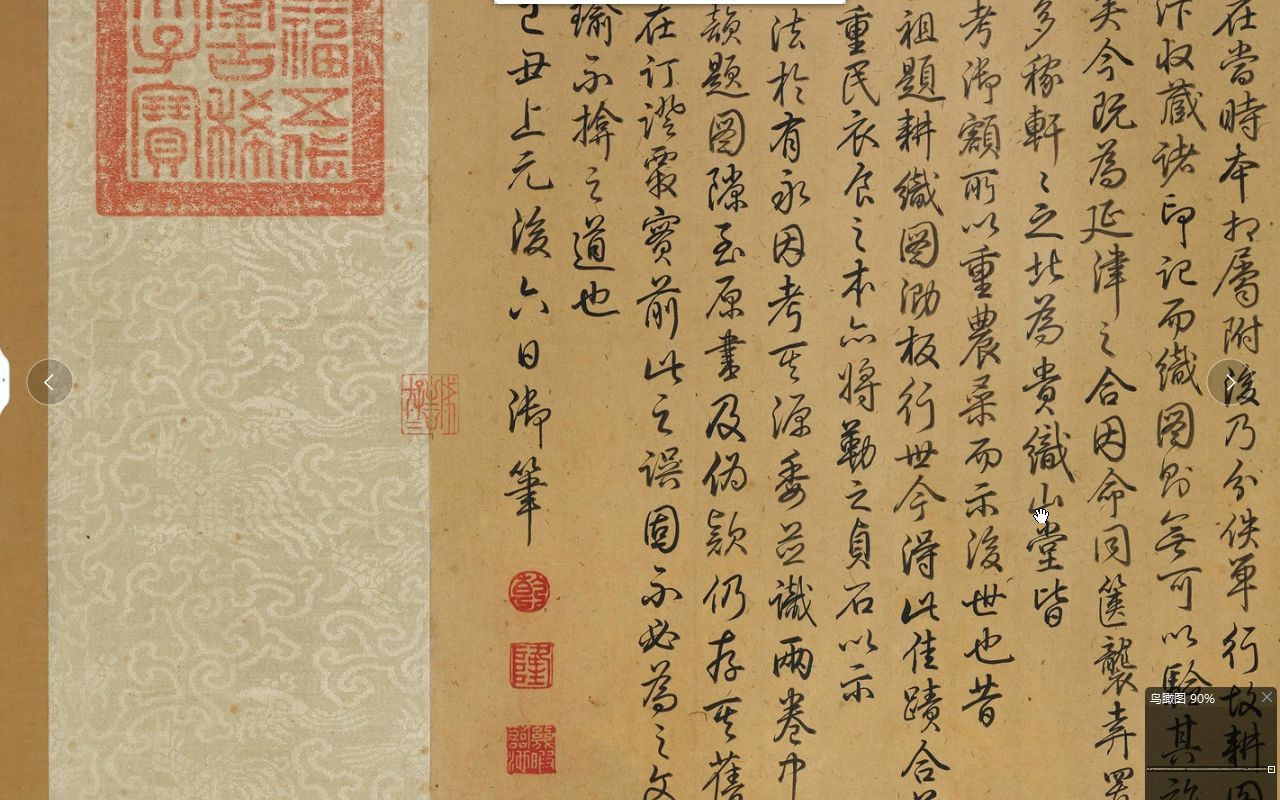 在當時本相屬附後乃分佚單行故耕圖
汴收藏諸印記而織圖則無可以驗其
矣今既為延津之合因命同篋襲弆置
多稼軒〻之北為貴織山堂皆
考御額所以重農桑而示後世也昔
祖題耕織圖泐板行世今得此佳蹟合
重民衣食之本亦將勒之貞石以示
法於有永因考其源委並識兩卷中
題圖隙至原書及偽款仍存其舊
在訂證覈實前此之誤固不必為之文
瑜不揜之道也
己丑上元後六日御筆
乾
隆
幾暇臨池
福五代
堂古稀
子寶
鸟瞰图 90%